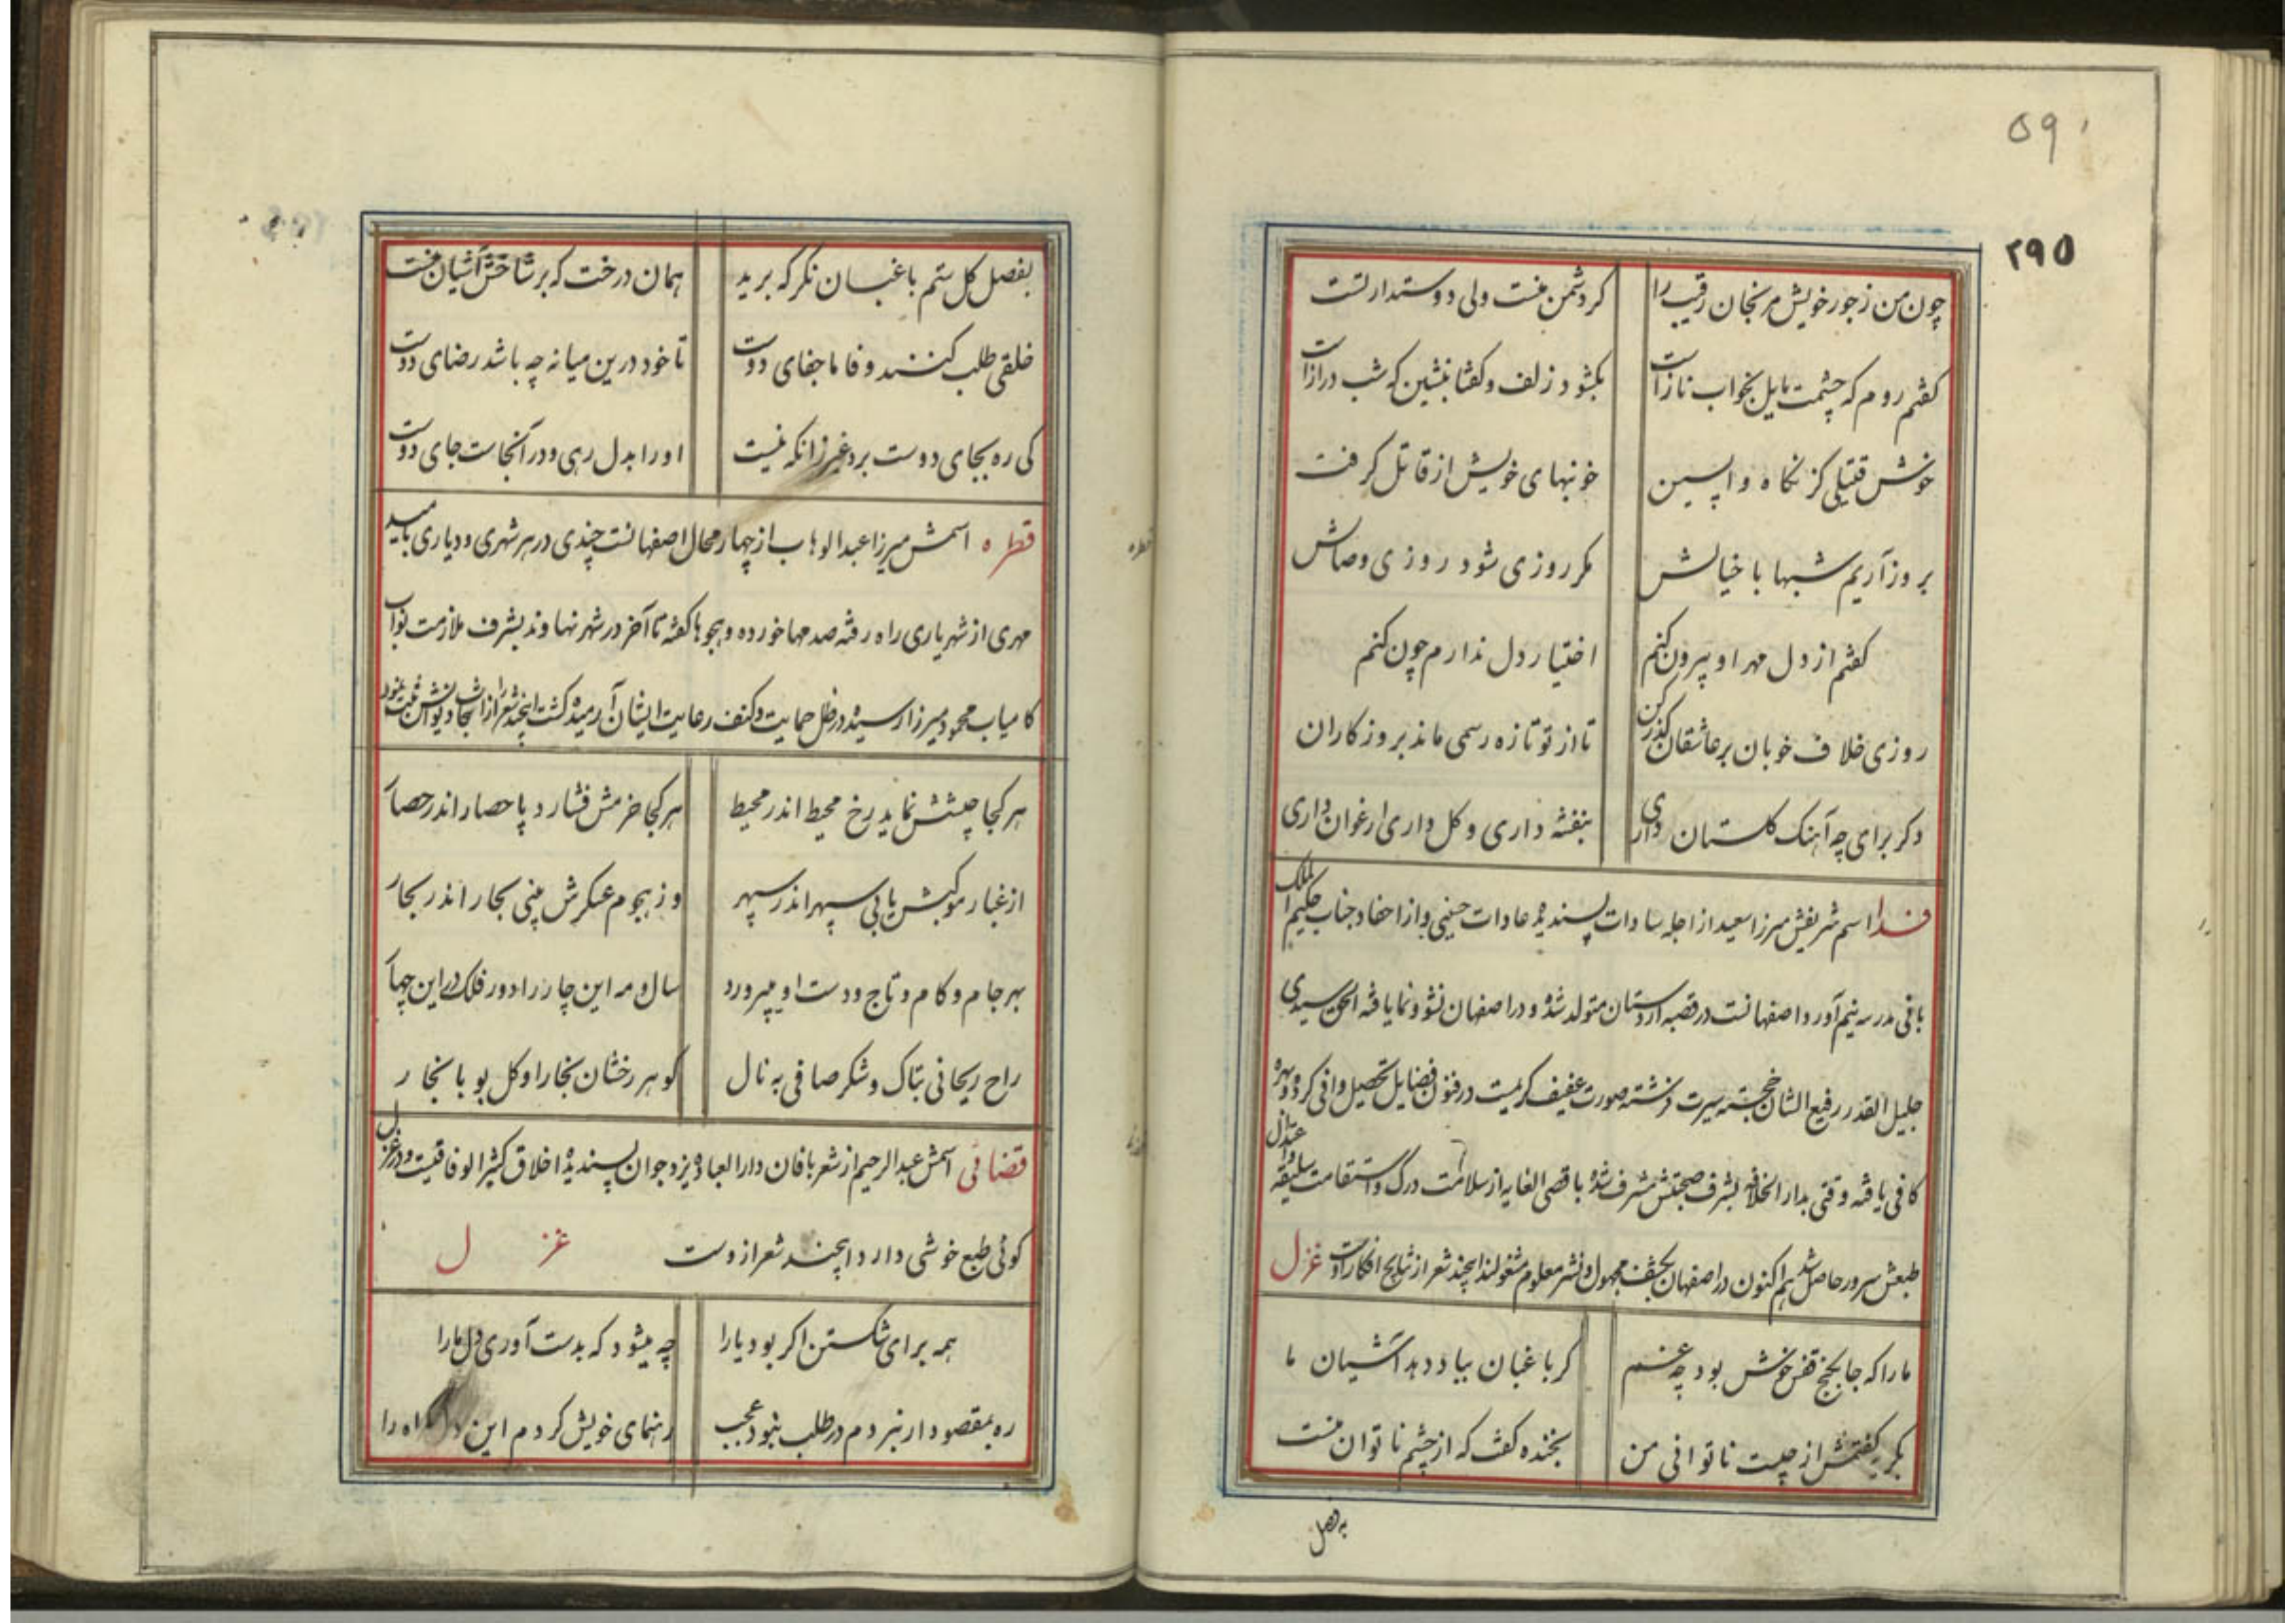 ۵۹۰
۲۹۵
چون من زجور خویش مرنجان رقیب را کر دشمن منست ولی دوستدار تست
کفتم روم که چشمت مایل بخواب نازاست بکشود زلف وکفتا بنشین که شب درازاست
خوش قتیلی کز نکاه واپسین خونبهای خویش از قاتل کرفت
بروز آریم شبها با خیالش مکر روزی شود روزی وصالش
کفتم از دل مهر او بیرون کنم اختیار دل ندارم چون کنم
روزی خلاف خوبان بر عاشقان کذر کن تا از تو تازه رسمی ماند بروزکاران
دکر برای چه آهنک کلستان داری بنفشه داری وکل داری ارغوان داری
فدا اسم شریفش میرزا سعید از اجله سادات پسندیده عادات حسینی واز احفاد جناب حکیم الملک
بانی مدرسه نیم آورد اصفهانست در قصبه اردستان متولد شده ودر اصفهان نشو ونما یافته الحق سیدی
جلیل القدر رفیع الشان خجسته سیرت فرشته صورت عفیف کریمیست در فنون فضایل تحصیل وافی کرده وبهره
کافی یافته وقتی بدار الخلافه بشرف صحبتش مشرف شده باقصی الغایه از سلامت درک واستقامت سلیقه واعتدال
طبعش سرور حاصل شد هم اکنون در اصفهان بکشف مجهول ونشر معلوم مشغولند اینچند شعر از نتایج افکار اوست غزل
ما را که جا بکنج قفس خوش بود چه غم کر باغبان بباد دهد آشیان ما
بکریه کفتمش از چیست ناتوانی من بخنده کفت که از چشم ناتوان منست
بفصل
بفصل کل ستم باغبان نکر که برید همان درخت که بر شاخش آشیان منست
خلقی طلب کنند وفا ما جفای دوست تا خود درین میانه چه باشد رضای دوست
کی ره بجای دوست برد غیر زانکه نیست او را بدل رهی ودر آنجاست جای دوست
قطره اسمش میرزا عبدالوهاب از چهار محال اصفهانست چندی در هر شهری ودیاری بامید
مهری از شهریاری راه رفته صدمها خورده وهجوها کفته تا آخر در شهر نهاوند بشرف ملازمت نواب
کامیاب محمود میرزا رسیده در ظل حمایت وکنف رعایت ایشان آرمیده کشت اینچند شعر را از
هر کجا جیشش نماید رخ محیط اندر محیط هر کجا خرمش فشارد پا حصار اندر حصار
از غبار موکبش یابی سپهر اندر سپهر وز هجوم عسکرش بینی بحار اندر بحار
بهر جام وکام وتاج ودست او میپرورد سال ومه این چار را دور فلک در این چهار
راح ریحانی بتاک وشکر صافی به نال کوهر رخشان بخارا وکل بویا بخار
قضائی اسمش عبدالرحیم از شعر بافان دارالعباده یزد جوان پسندیده اخلاق کثیر الوفاقیست ودر غزل
کوئی طبع خوشی دارد اینچند شعر ازوست غزل
همه برای شکستن اکر بود یارا چه میشود که بدست آوری دل ما را
ره بمقصود ار نبردم در طلب نبود عجب رهنمای خویش کردم این دل کمراه را